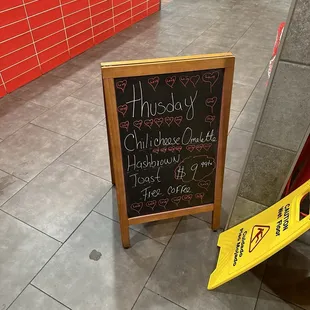 Thusday
Chilicheese Omelette
Hashbrown
Toast $9.99
Free Coffee
CAUTION
Wet Floor
Cuidado
Piso Mojado